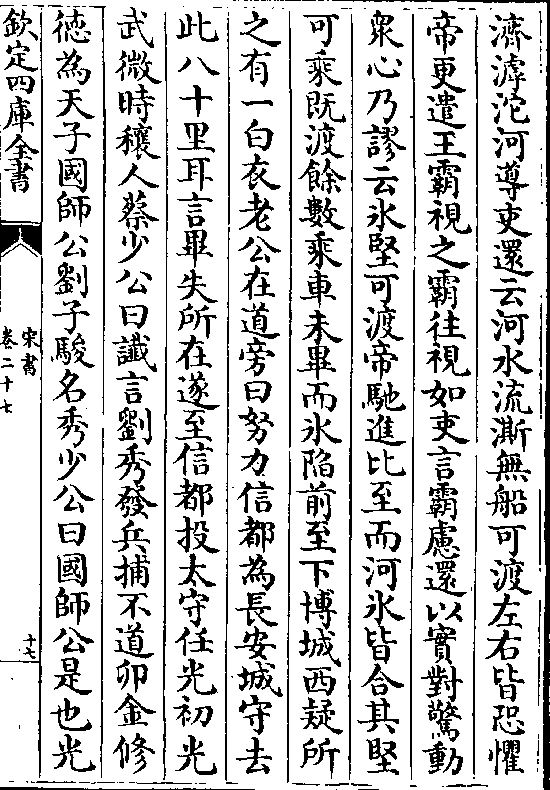 濟滹沱河導吏還云河水流澌無船可渡左右皆恐懼
帝更遣王霸視之霸往視如吏言霸慮還以實對驚動
衆心乃謬云氷堅可渡帝馳進比至而河氷皆合其堅
可乘既渡餘數乘車未畢而氷陷前至下博城西疑所
之有一白衣老公在道旁曰努力信都為長安城守去
此八十里耳言畢失所在遂至信都投太守任光初光
武微時穰人蔡少公曰讖言劉秀發兵捕不道卯金修
徳為天子國師公劉子駿名秀少公曰國師公是也光
欽定四庫全書
宋書
卷二十七
十七